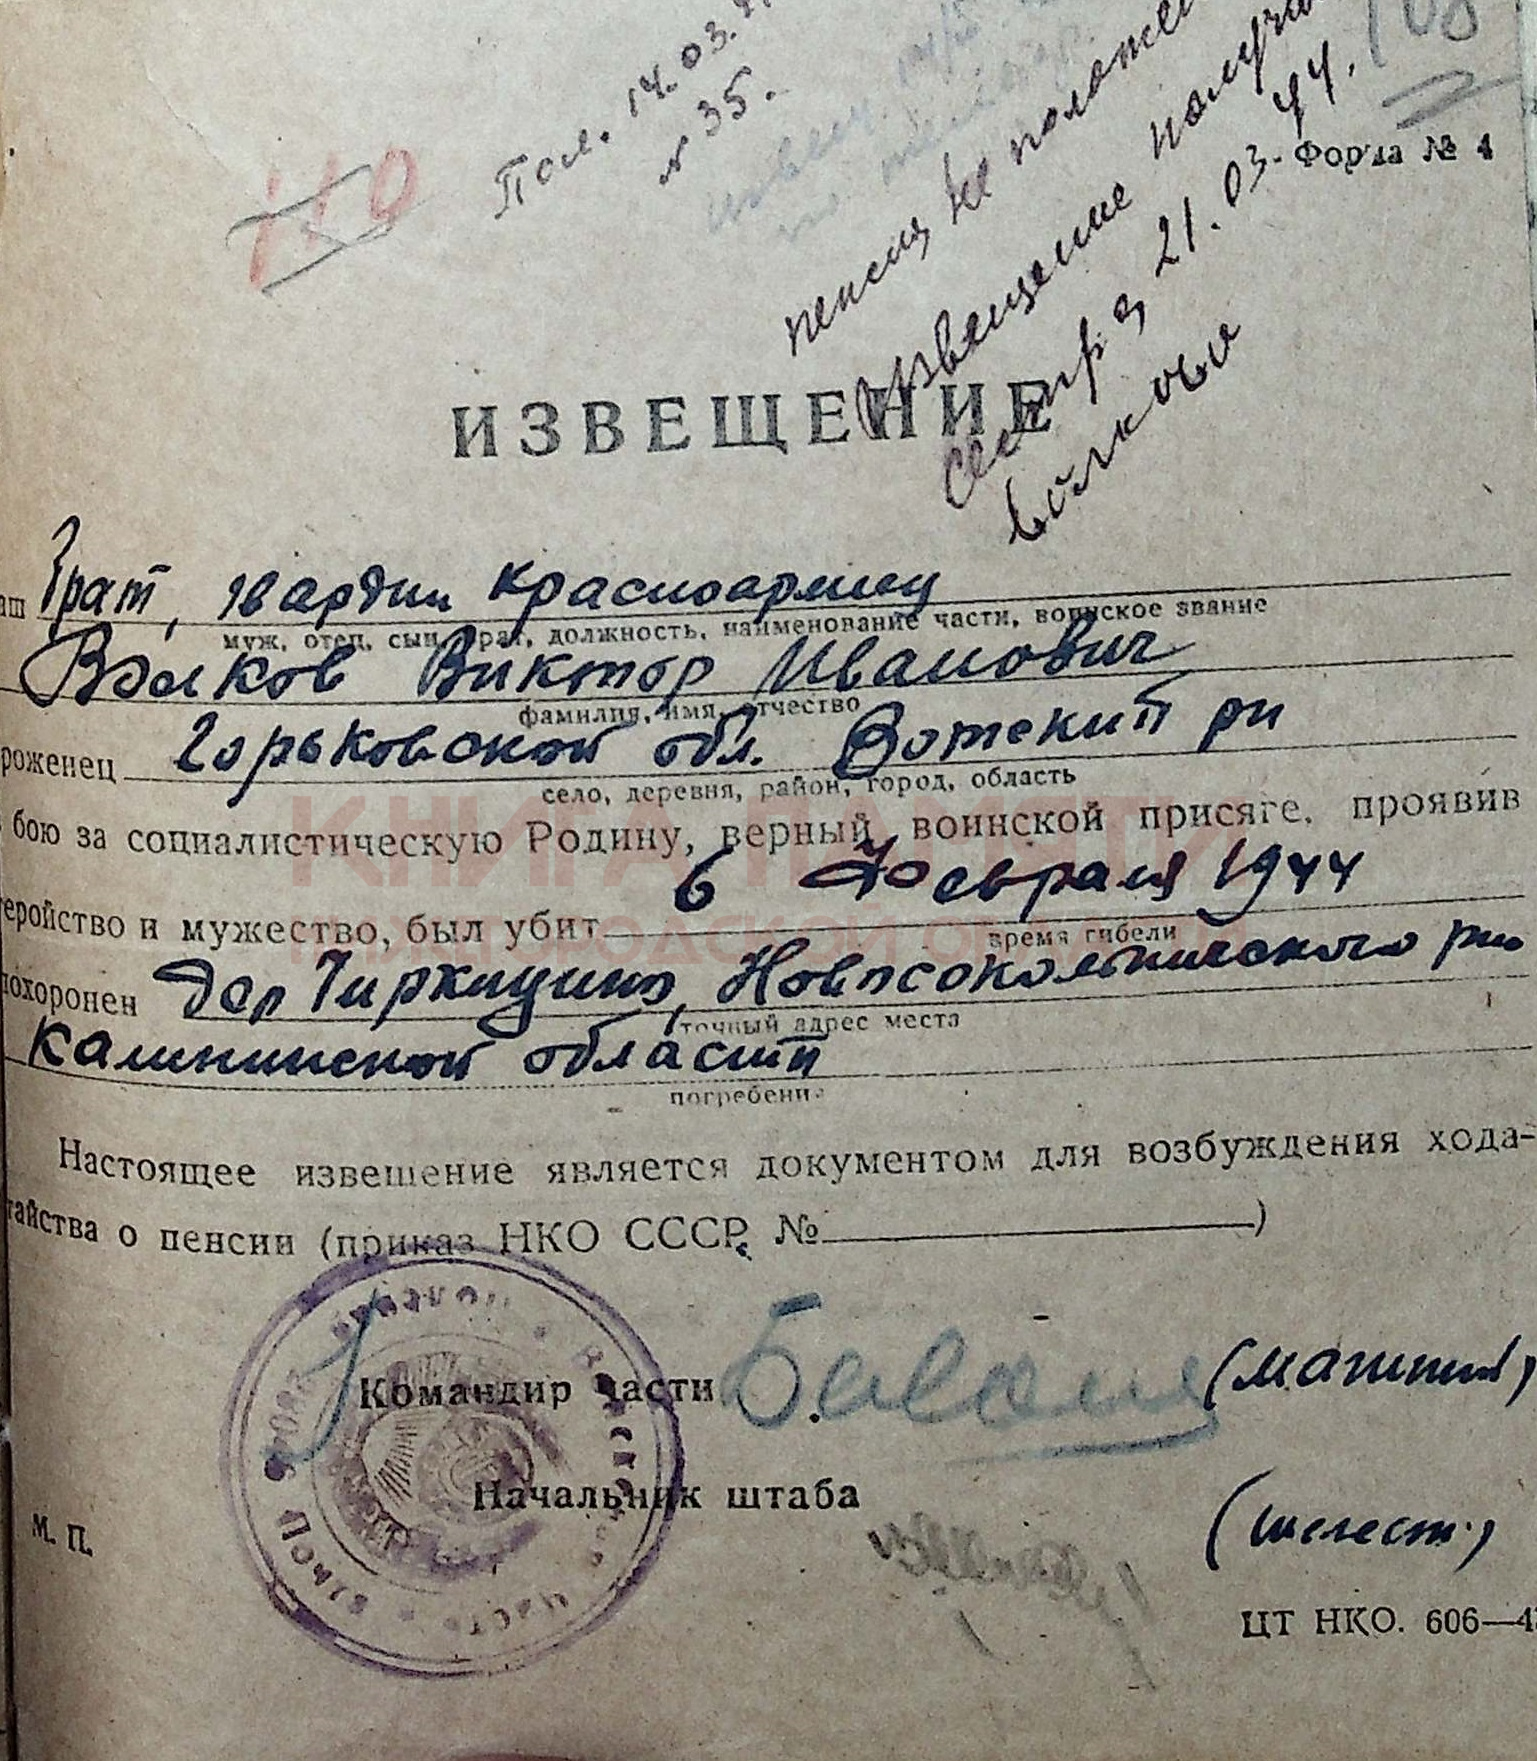 108
Пол. 14.03.
№ 35.
110
пенсия не полож
извещение получи
сестра 21.03.44.
волкова
Форма № 4
ИЗВЕЩЕНИЕ
аш брат, гвардии красноармеец
муж, отец, сын, брат, должность, наименование части, воинское звание
Волков Виктор Иванович
фамилия, имя, отчество
роженец Горьковской обл. Вотский рн
село, деревня, район, город, область
бою за социалистическую Родину, верный воинской присяге, проявив
еройство и мужество, был убит 6 февраля 1944
время гибели
похоронен дер Чиркицино, Новосокольнического рно
точный адрес места
Калининской области
погребени
Настоящее извещение является документом для возбуждения хода-
тайства о пенсии (приказ НКО СССР. № )
Командир части (машнин)
Начальник штаба
(шелест)
М. П.
ЦТ НКО. 606—43
КНИГА ПАМЯТИ
НИЖЕГОРОДСКОЙ ОБЛАСТИ